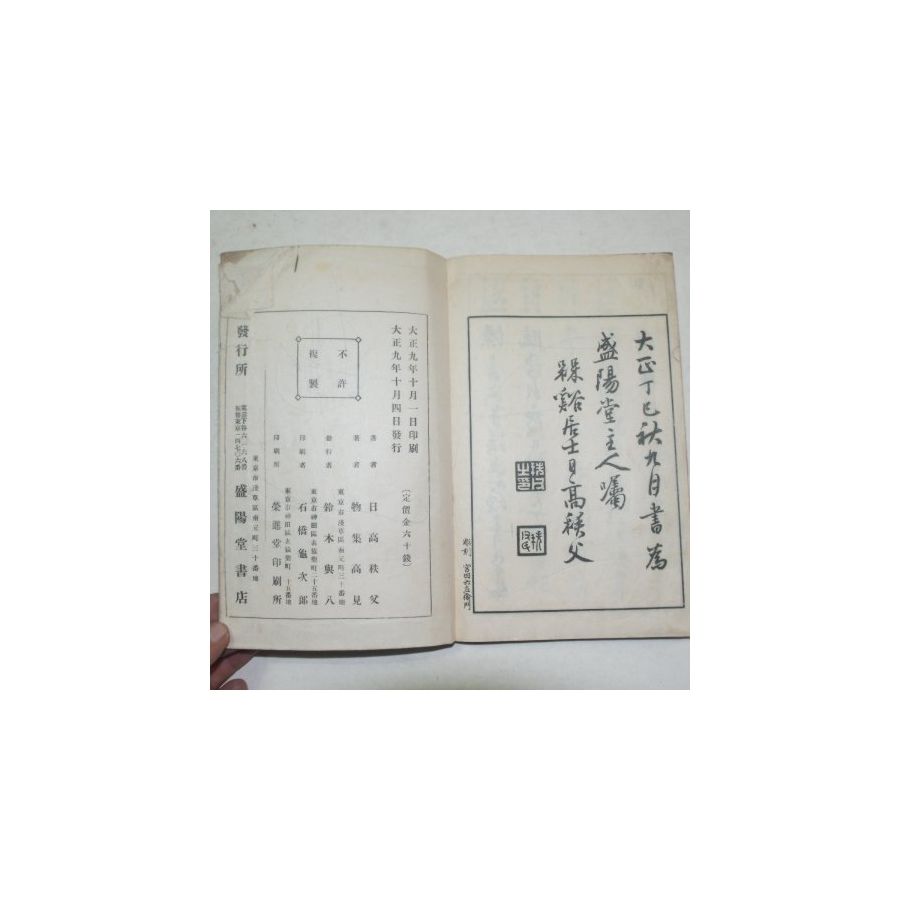 大正丁巳秋九日書為
盛陽堂主人嘱
槑谿居士日高秩父
彫刻 宮田六左衛門
大正九年十月一日印刷
大正九年十月四日發行
(定價金六十錢)
不許
複製
著者 日高秩父
著者 物集高見
東京市淺草區南元町三十番地
發行者 鈴木與八
印刷者 石橋龜次郎
印刷所 榮進堂印刷所
東京市淺草區南元町三十番地
發行所 盛陽堂書店